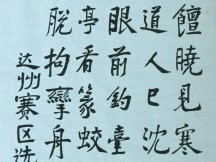 饘曉見寒
道人已沈
眼前釣臺
亭看篆蛟
脫拘攣舟
达州赛区选